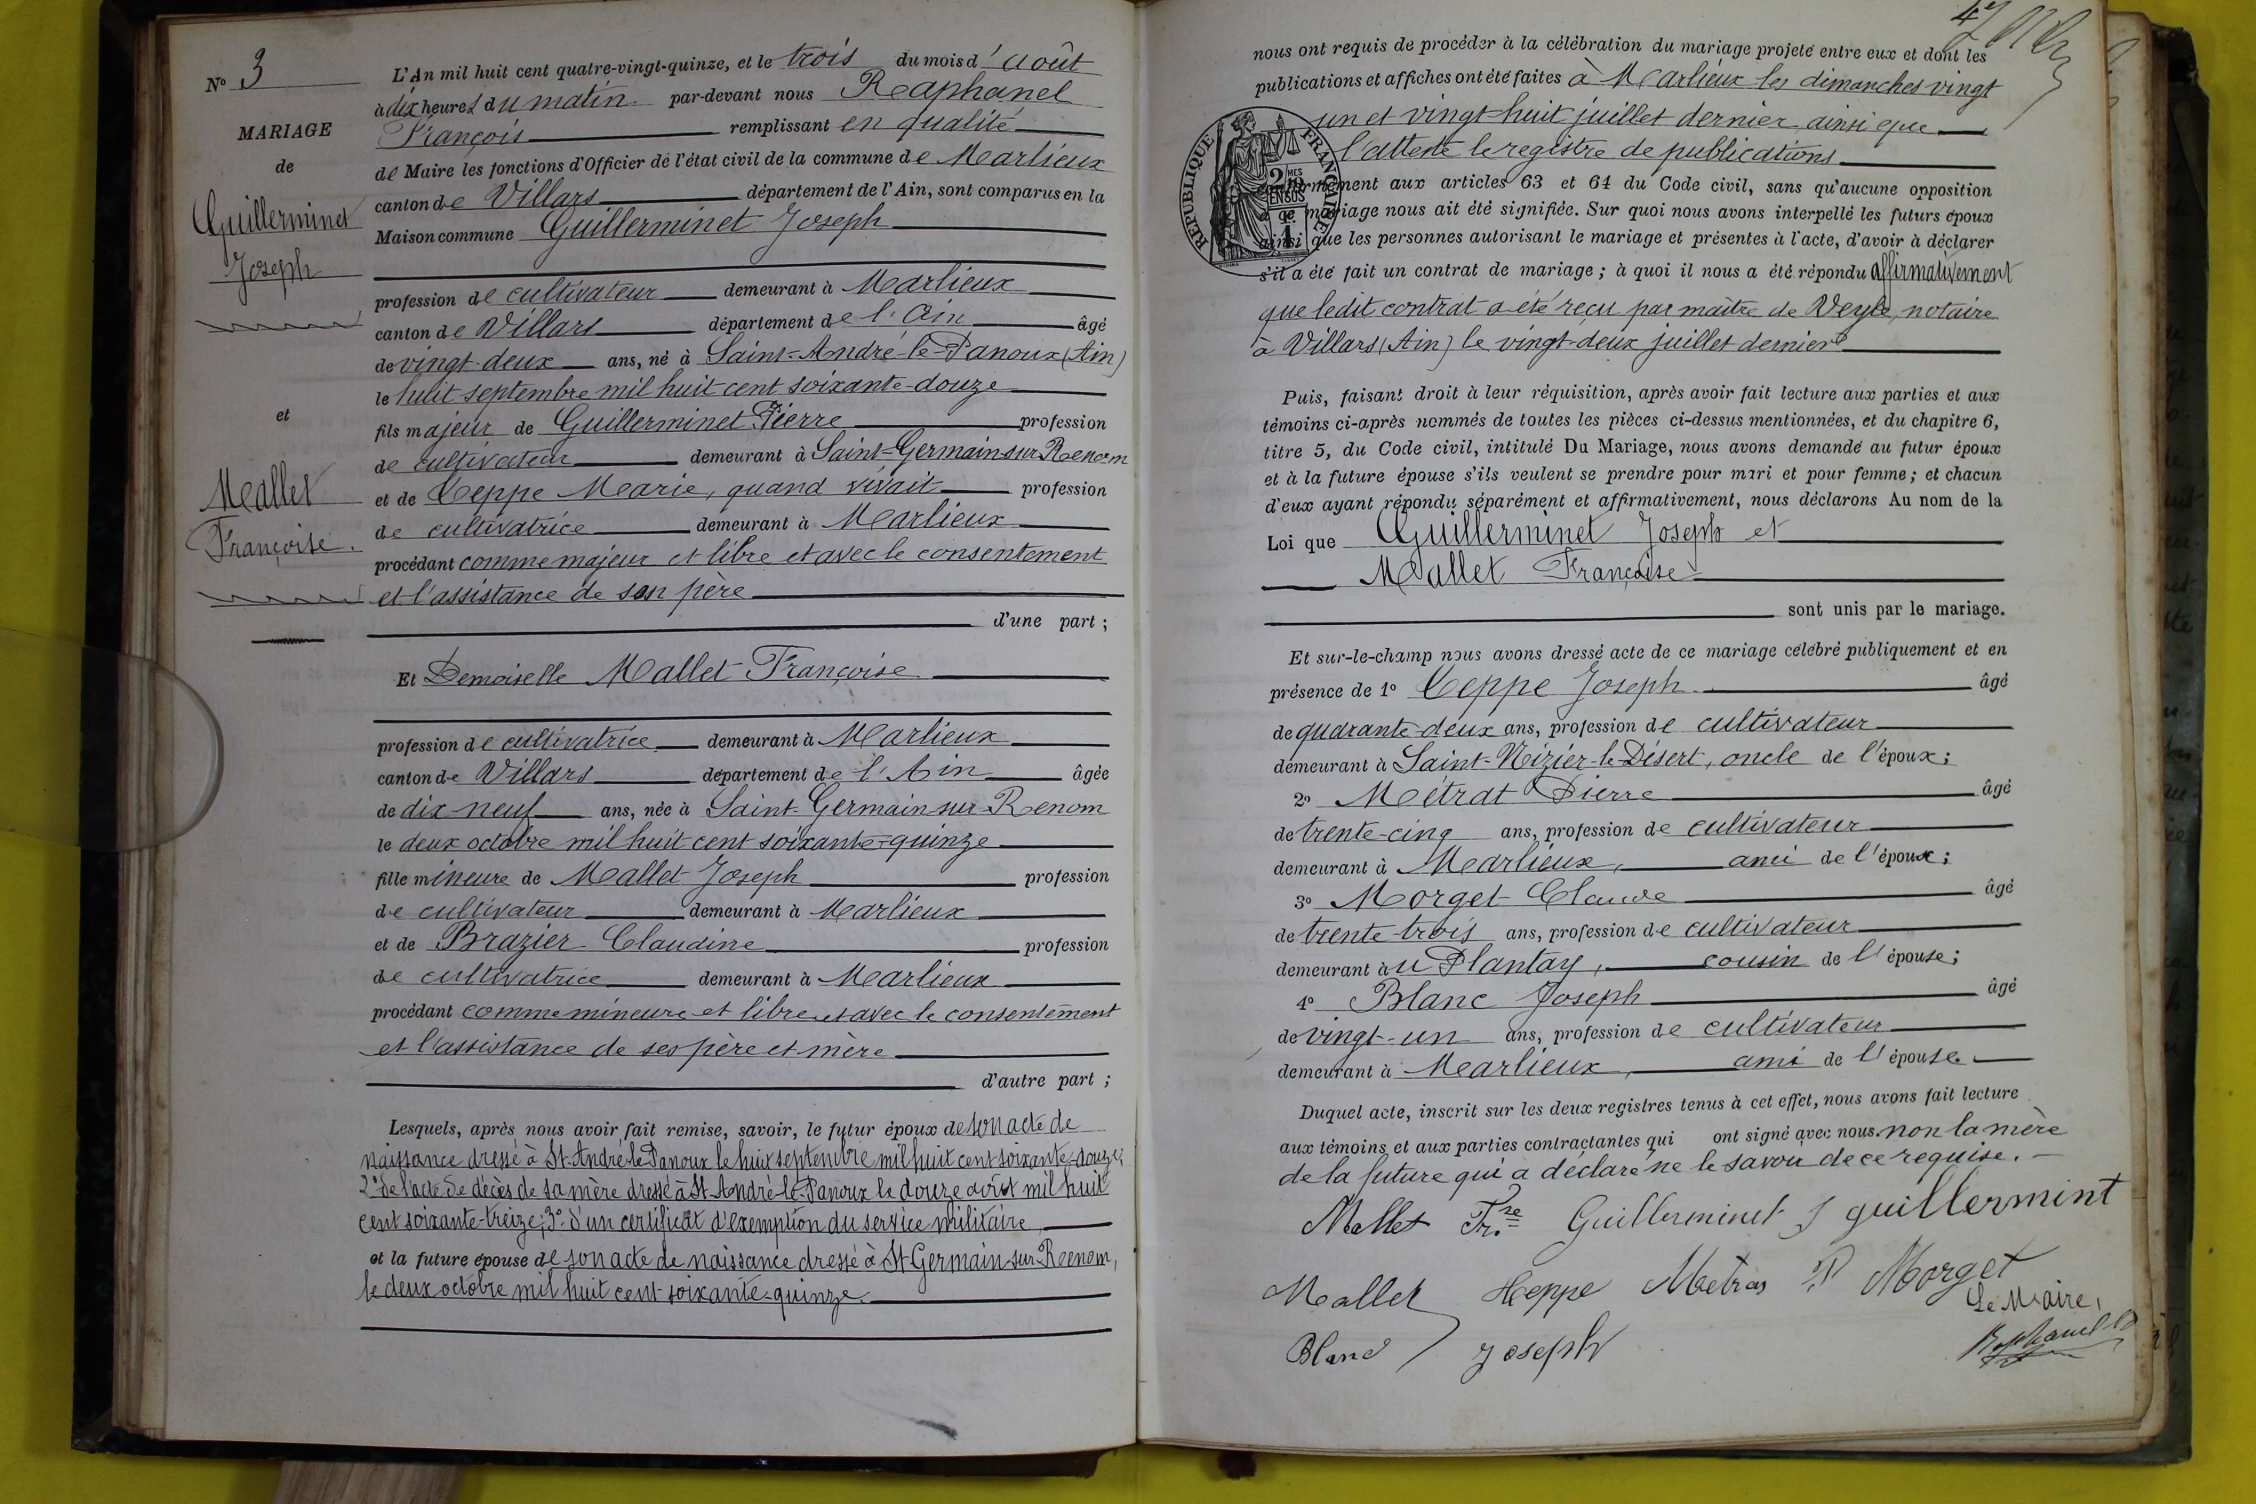 N° 3
MARIAGE
de
Guillerminet
Joseph
et
Mallet
Françoise.
L'An mil huit cent quatre-vingt-quinze, et le trois du mois d'août
à dix heures du matin par-devant nous Raphanel
François remplissant en qualité
de Maire les fonctions d'Officier de l'état civil de la commune de Marlieux
canton de Villars département de l'Ain, sont comparus en la
Maison commune Guillerminet Joseph
profession de cultivateur demeurant à Marlieux
canton de Villars département de l'Ain âgé
de vingt-deux ans, né à Saint-André-le-Panoux (Ain)
le huit septembre mil huit cent soixante-douze
fils majeur de Guillerminet Pierre profession
de cultivateur demeurant à Saint-Germain-sur-Renom
et de Ceppe Marie, quand vivait profession
de cultivatrice demeurant à Marlieux
procédant comme majeur et libre et avec le consentement
et l'assistance de son père
d'une part ;
Et Demoiselle Mallet Françoise
profession de cultivatrice demeurant à Marlieux
canton de Villars département de l'Ain âgée
de dix-neuf ans, née à Saint-Germain-sur-Renom
le deux octobre mil huit cent soixante-quinze
fille mineure de Mallet Joseph profession
de cultivateur demeurant à Marlieux
et de Brazier Claudine profession
de cultivatrice demeurant à Marlieux
procédant comme mineure et libre et avec le consentement
et l'assistance de ses père et mère
d'autre part ;
Lesquels, après nous avoir fait remise, savoir, le futur époux de son acte de
naissance dressé à St-André-le-Panoux le huit septembre mil huit cent soixante-douze;
2° de l'acte de décès de sa mère dressé à St-André-le-Panoux le douze août mil huit
cent soixante-treize; 3° d'un certificat d'exemption du service militaire
et la future épouse de son acte de naissance dressé à St Germain-sur-Renom,
le deux octobre mil huit cent soixante-quinze.
nous ont requis de procéder à la célébration du mariage projeté entre eux et dont les
publications et affiches ont été faites à Marlieux les dimanches vingt
un et vingt-huit juillet dernier ainsi que
l'atteste le registre de publications
RÉPUBLIQUE FRANÇAISE
2 MES
10
EN SUS
conformément aux articles 63 et 64 du Code civil, sans qu'aucune opposition
à ce mariage nous ait été signifiée. Sur quoi nous avons interpellé les futurs époux
ainsi que les personnes autorisant le mariage et présentes à l'acte, d'avoir à déclarer
s'il a été fait un contrat de mariage ; à quoi il nous a été répondu affirmativement
que ledit contrat a été reçu par maître de Veyle notaire
à Villars (Ain) le vingt-deux juillet dernier
Puis, faisant droit à leur réquisition, après avoir fait lecture aux parties et aux
témoins ci-après nommés de toutes les pièces ci-dessus mentionnées, et du chapitre 6,
titre 5, du Code civil, intitulé Du Mariage, nous avons demandé au futur époux
et à la future épouse s'ils veulent se prendre pour mari et pour femme ; et chacun
d'eux ayant répondu séparément et affirmativement, nous déclarons Au nom de la
Loi que Guillerminet Joseph et
Mallet Françoise
sont unis par le mariage.
Et sur-le-champ nous avons dressé acte de ce mariage célébré publiquement et en
présence de 1° Ceppe Joseph âgé
de quarante-deux ans, profession de cultivateur
demeurant à Saint-Nizier-le-Désert, oncle de l'époux ;
2° Métrat Pierre âgé
de trente-cinq ans, profession de cultivateur
demeurant à Marlieux, ami de l'époux ;
3° Morget Claude âgé
de trente-trois ans, profession de cultivateur
demeurant au Plantay, cousin de l'épouse ;
4° Blanc Joseph âgé
de vingt-un ans, profession de cultivateur
demeurant à Marlieux, ami de l'épouse
Duquel acte, inscrit sur les deux registres tenus à cet effet, nous avons fait lecture
aux témoins et aux parties contractantes qui ont signé avec nous non la mère
de la future qui a déclaré ne le savoir de ce requise.
Mallet Fr.se Guillerminet J guillermint
Mallet Ceppe Metras P Morget
Le Maire,
Blanc Joseph Raphanel